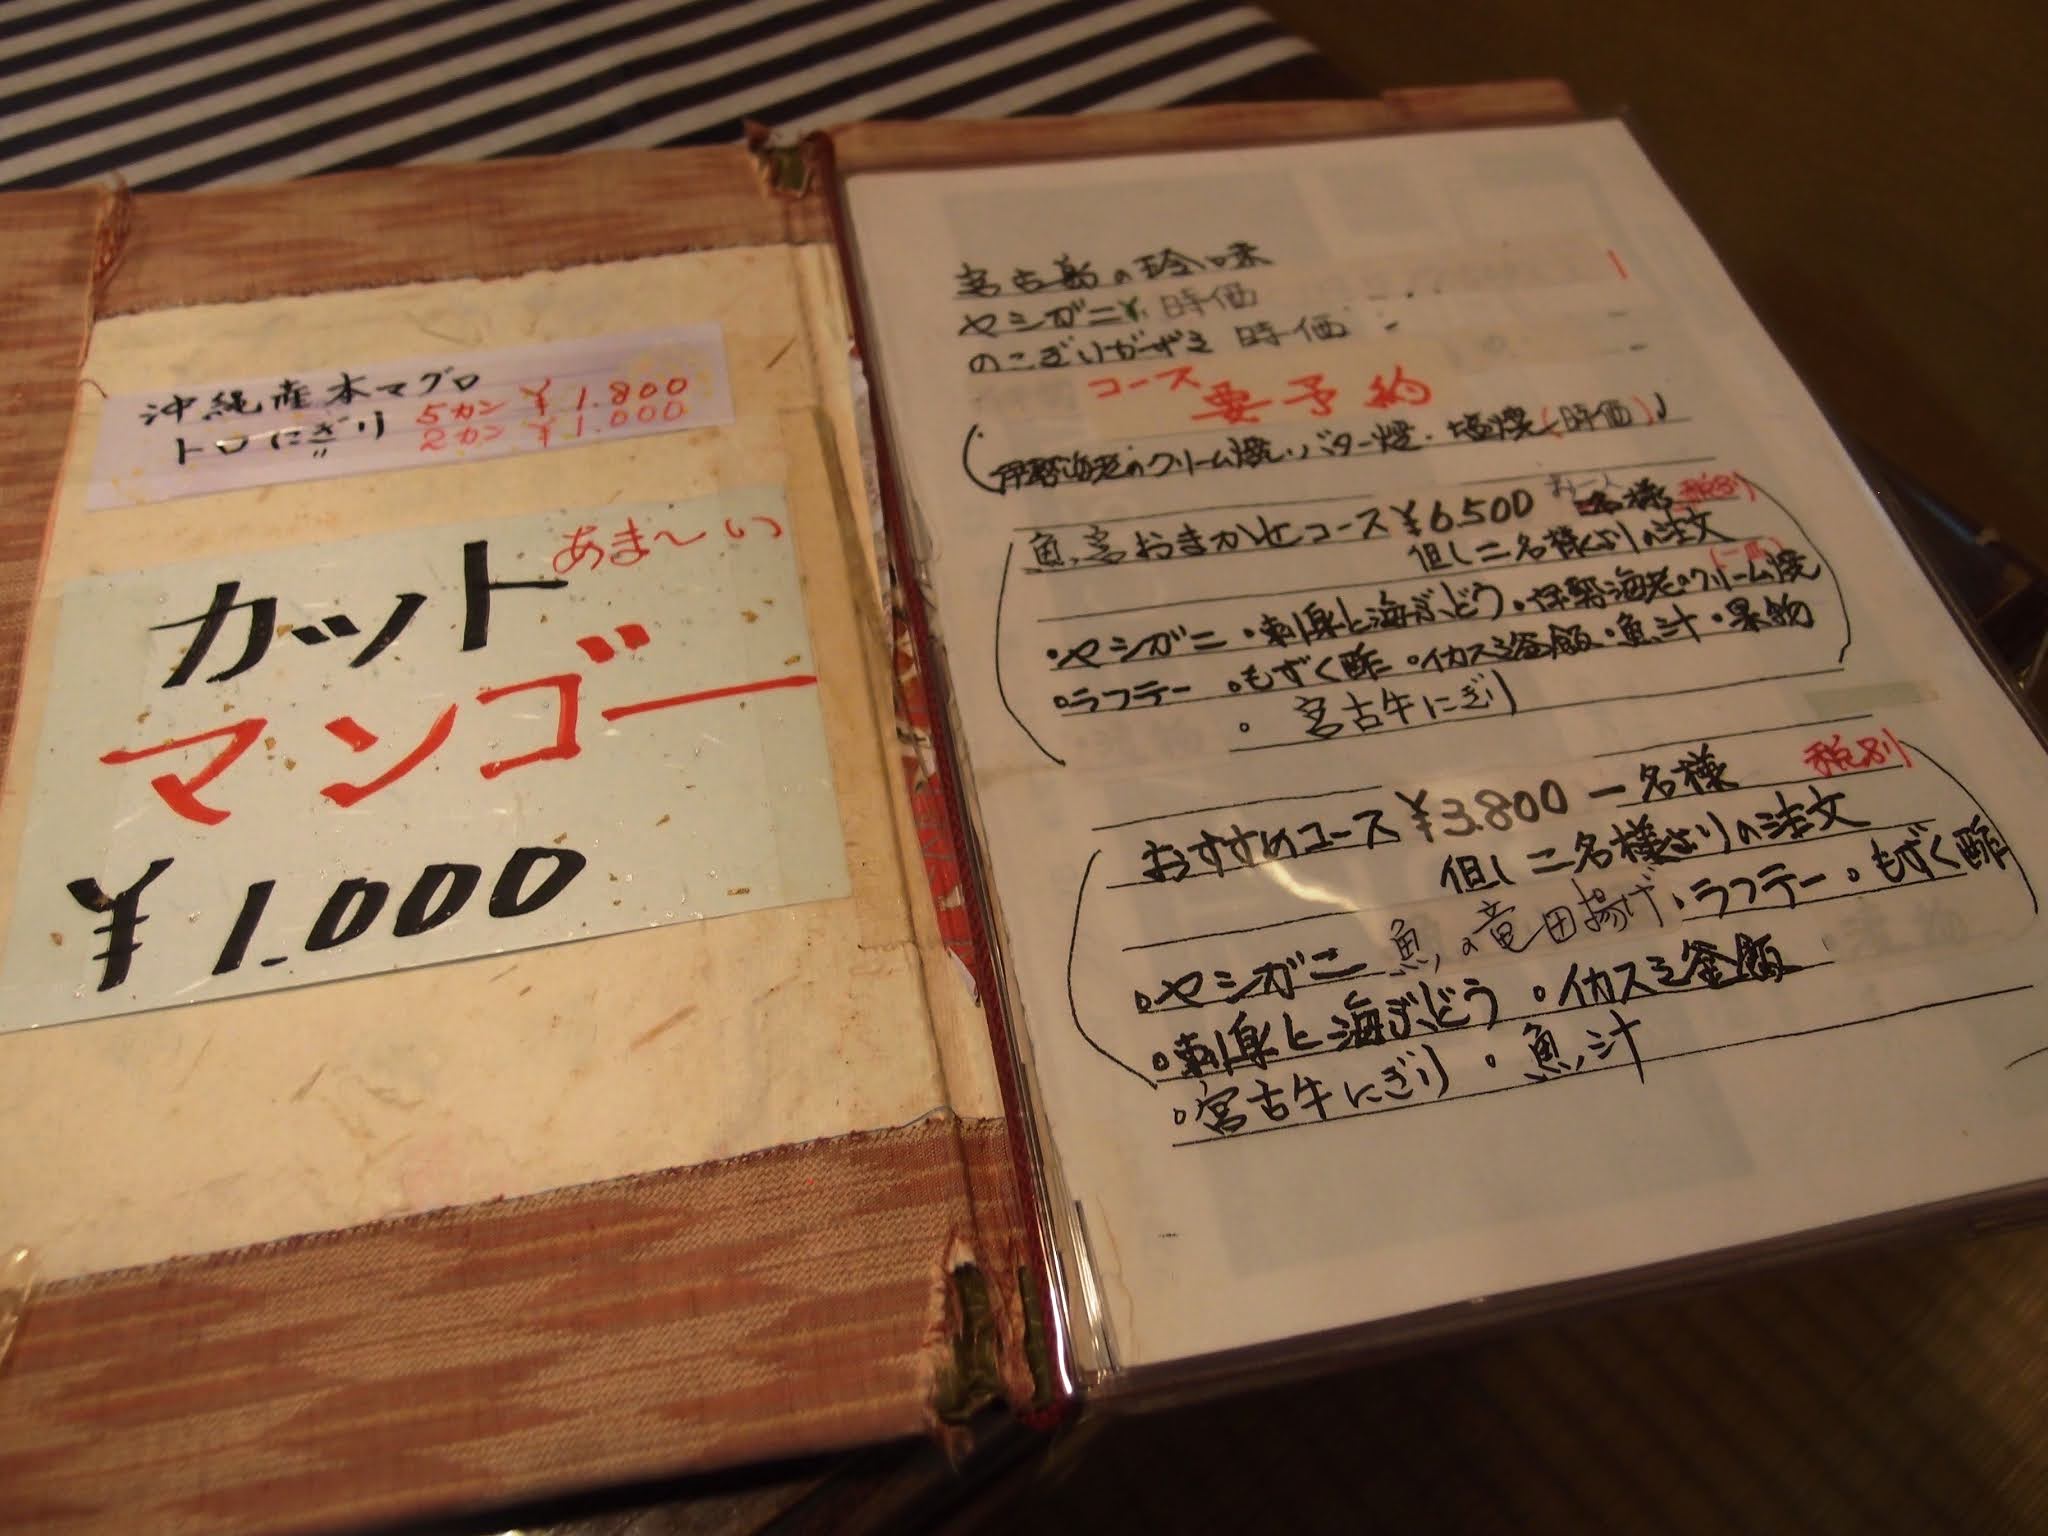 沖縄産本マグロ
トロにぎり 5カン ¥1.800
2カン ¥1.000
あま〜い
カット
マンゴー
¥1.000
宮古島の珍味
ヤシガニ¥ 時価
のこぎりがざみ 時価
コース 要予約
伊勢海老のクリーム焼・バター焼・塩焼(時価)
魚宮おまかせコース¥6.500 お一人名様 税別
但し二名様よりの注文
・ヤシガニ・刺身と海ぶどう・伊勢海老のクリーム焼
・ラフテー ・もずく酢 ・イカスミ釜飯・魚汁・果物
・宮古牛にぎり
おすすめコース¥3.800 一名様 税別
但し二名様よりの注文
・ヤシガニ 魚の竜田揚げ・ラフテー・もずく酢
・刺身と海ぶどう ・イカスミ釜飯
・宮古牛にぎり ・魚汁